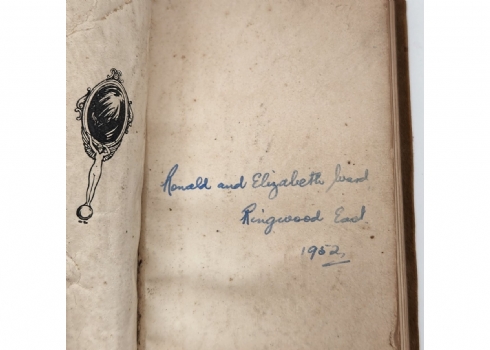 Ronald and Elizabeth Ward
Ringwood East
1952,